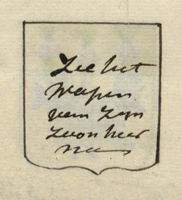 Zie het
Wapen
van Zyn
Zoon hier
na